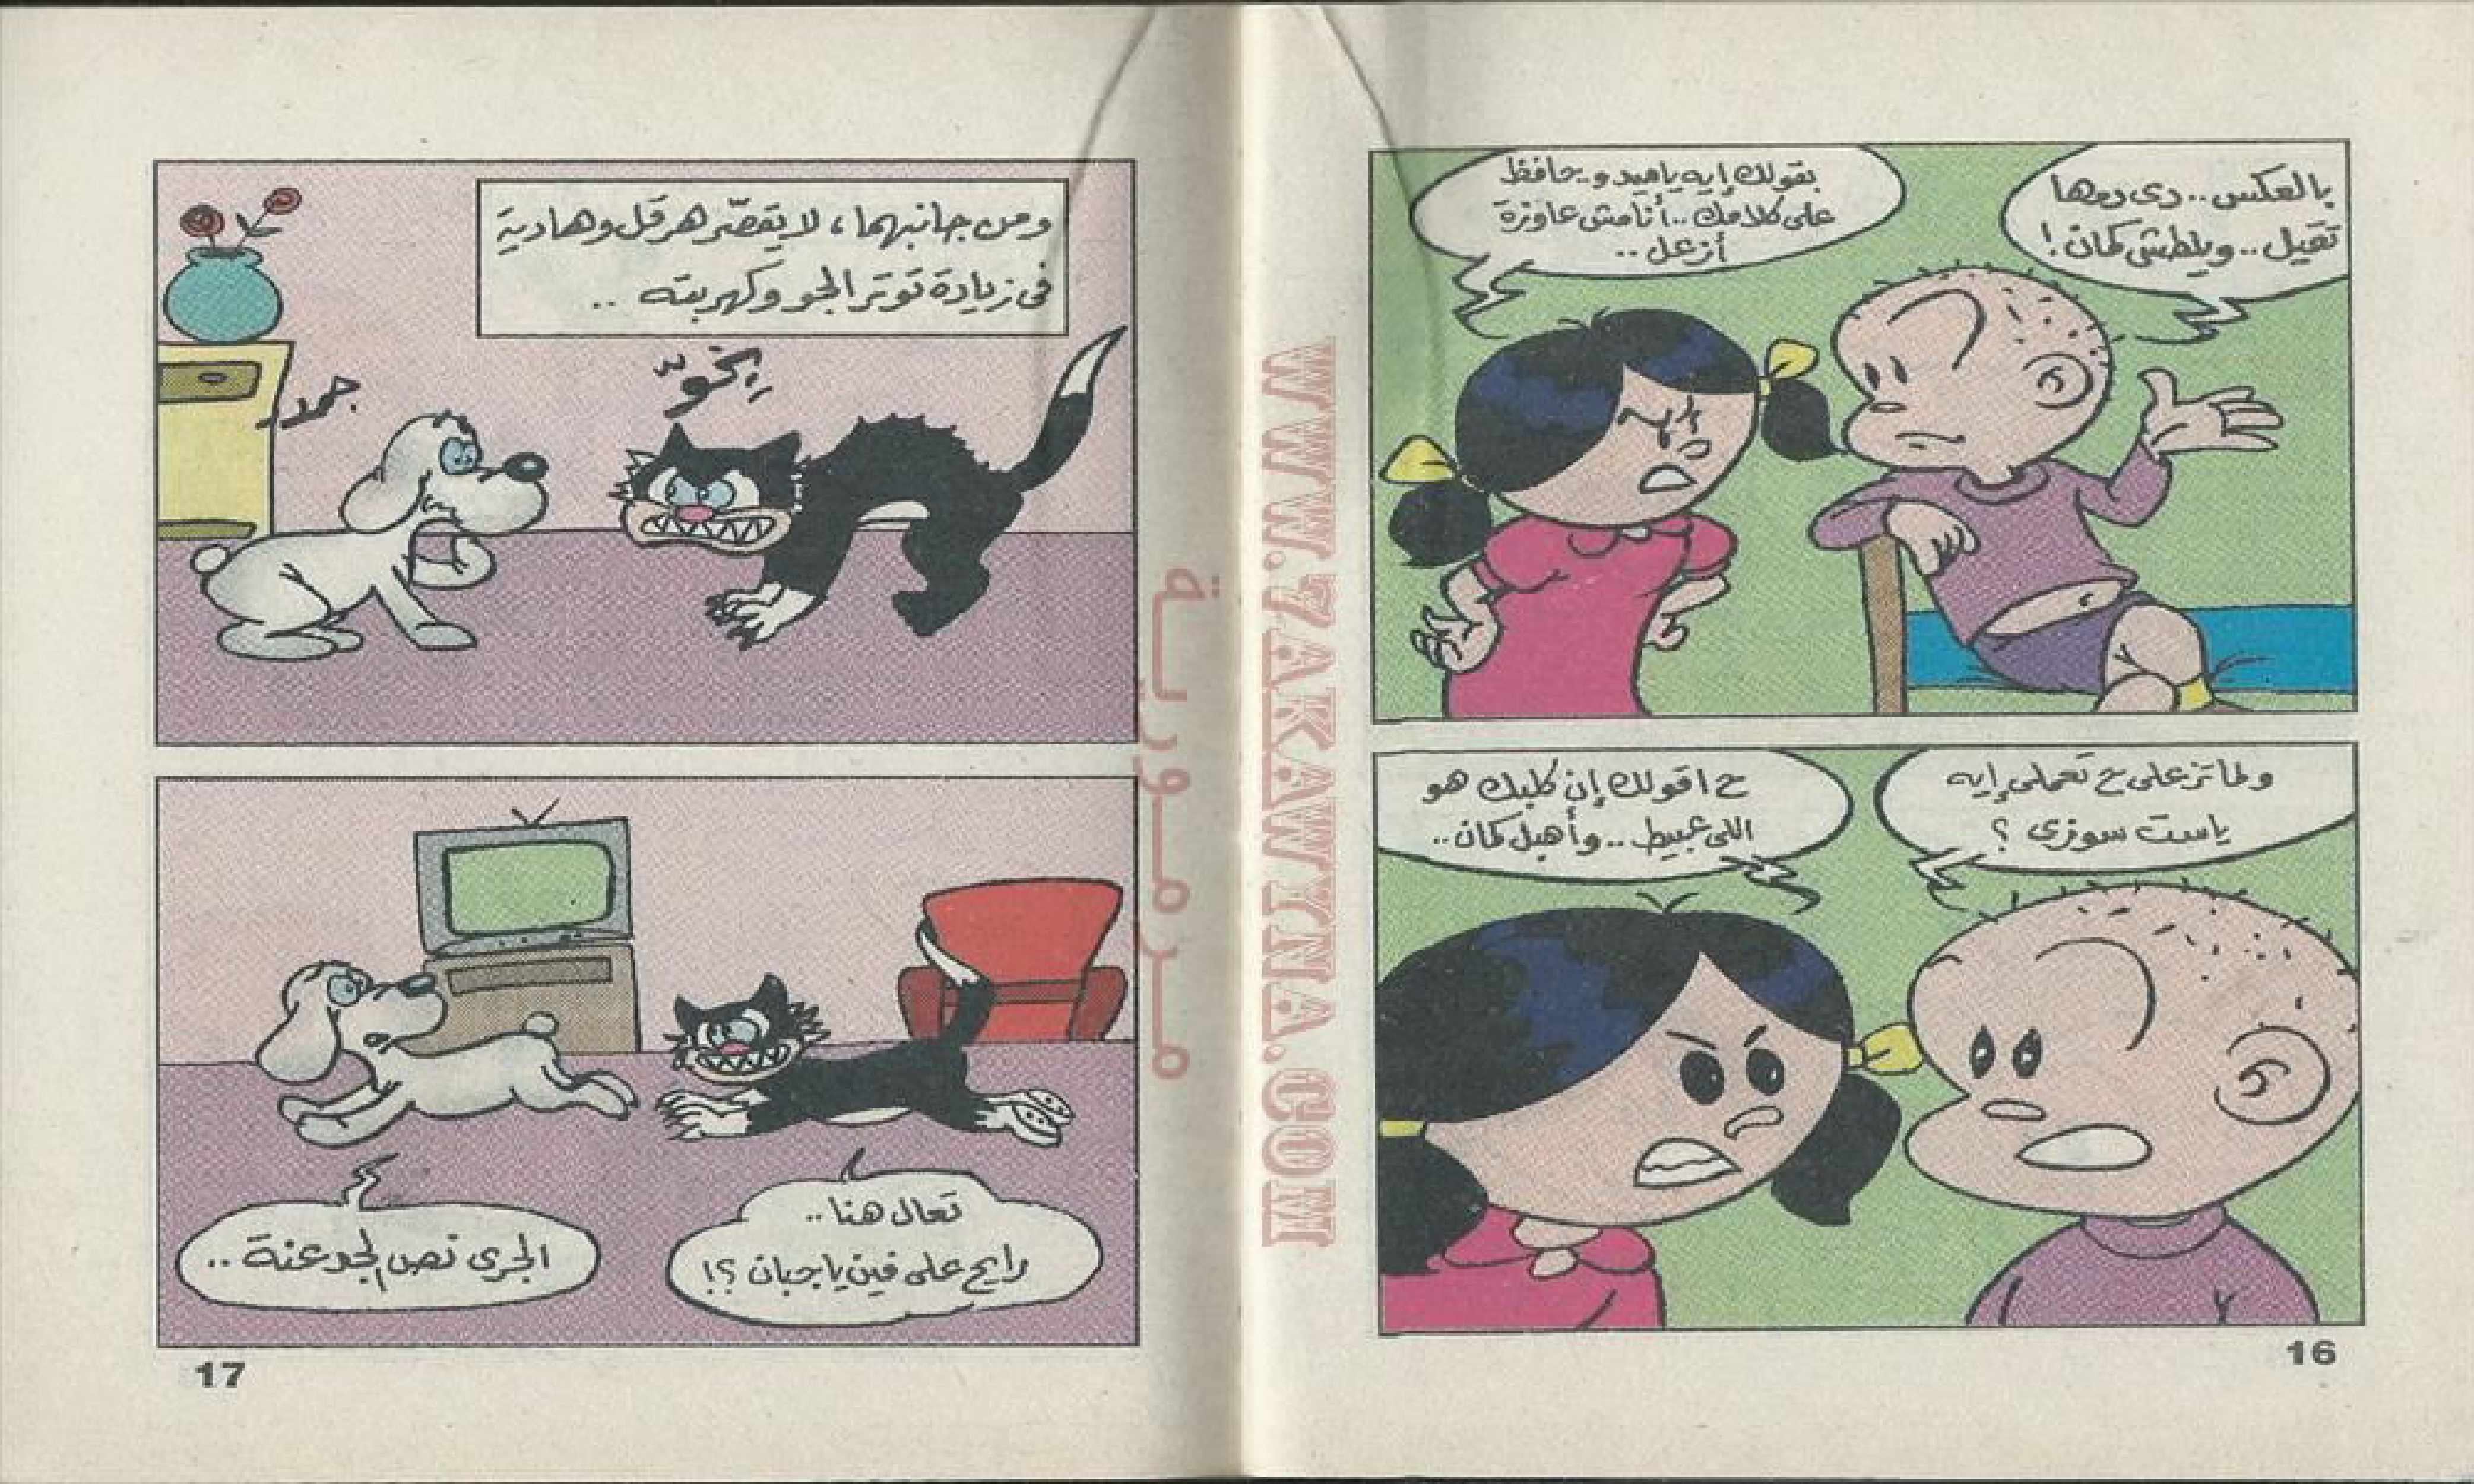 بالعكس.. دى دمها
تقيل.. ويلطش كمان!
بقولك إيه ياميدو.. حافظ
على كلامك.. أنا مش عاوزة
أزعل..
ولما تزعلى ح تعملى إيه
ياست سوزى ؟
ح اقولك إن كلبك هو
اللى عبيط.. وأهبل كمان..
16
ومن جانبهما، لا يقصّر هرقل وهادية
فى زيادة توتر الجو وكهربته ..
يخوّ
تعال هنا..
رايح على فين ياجبان ؟!
الجرى نص الجدعنة ..
17
WWW.7AKAWYNA.COM
مرمورية